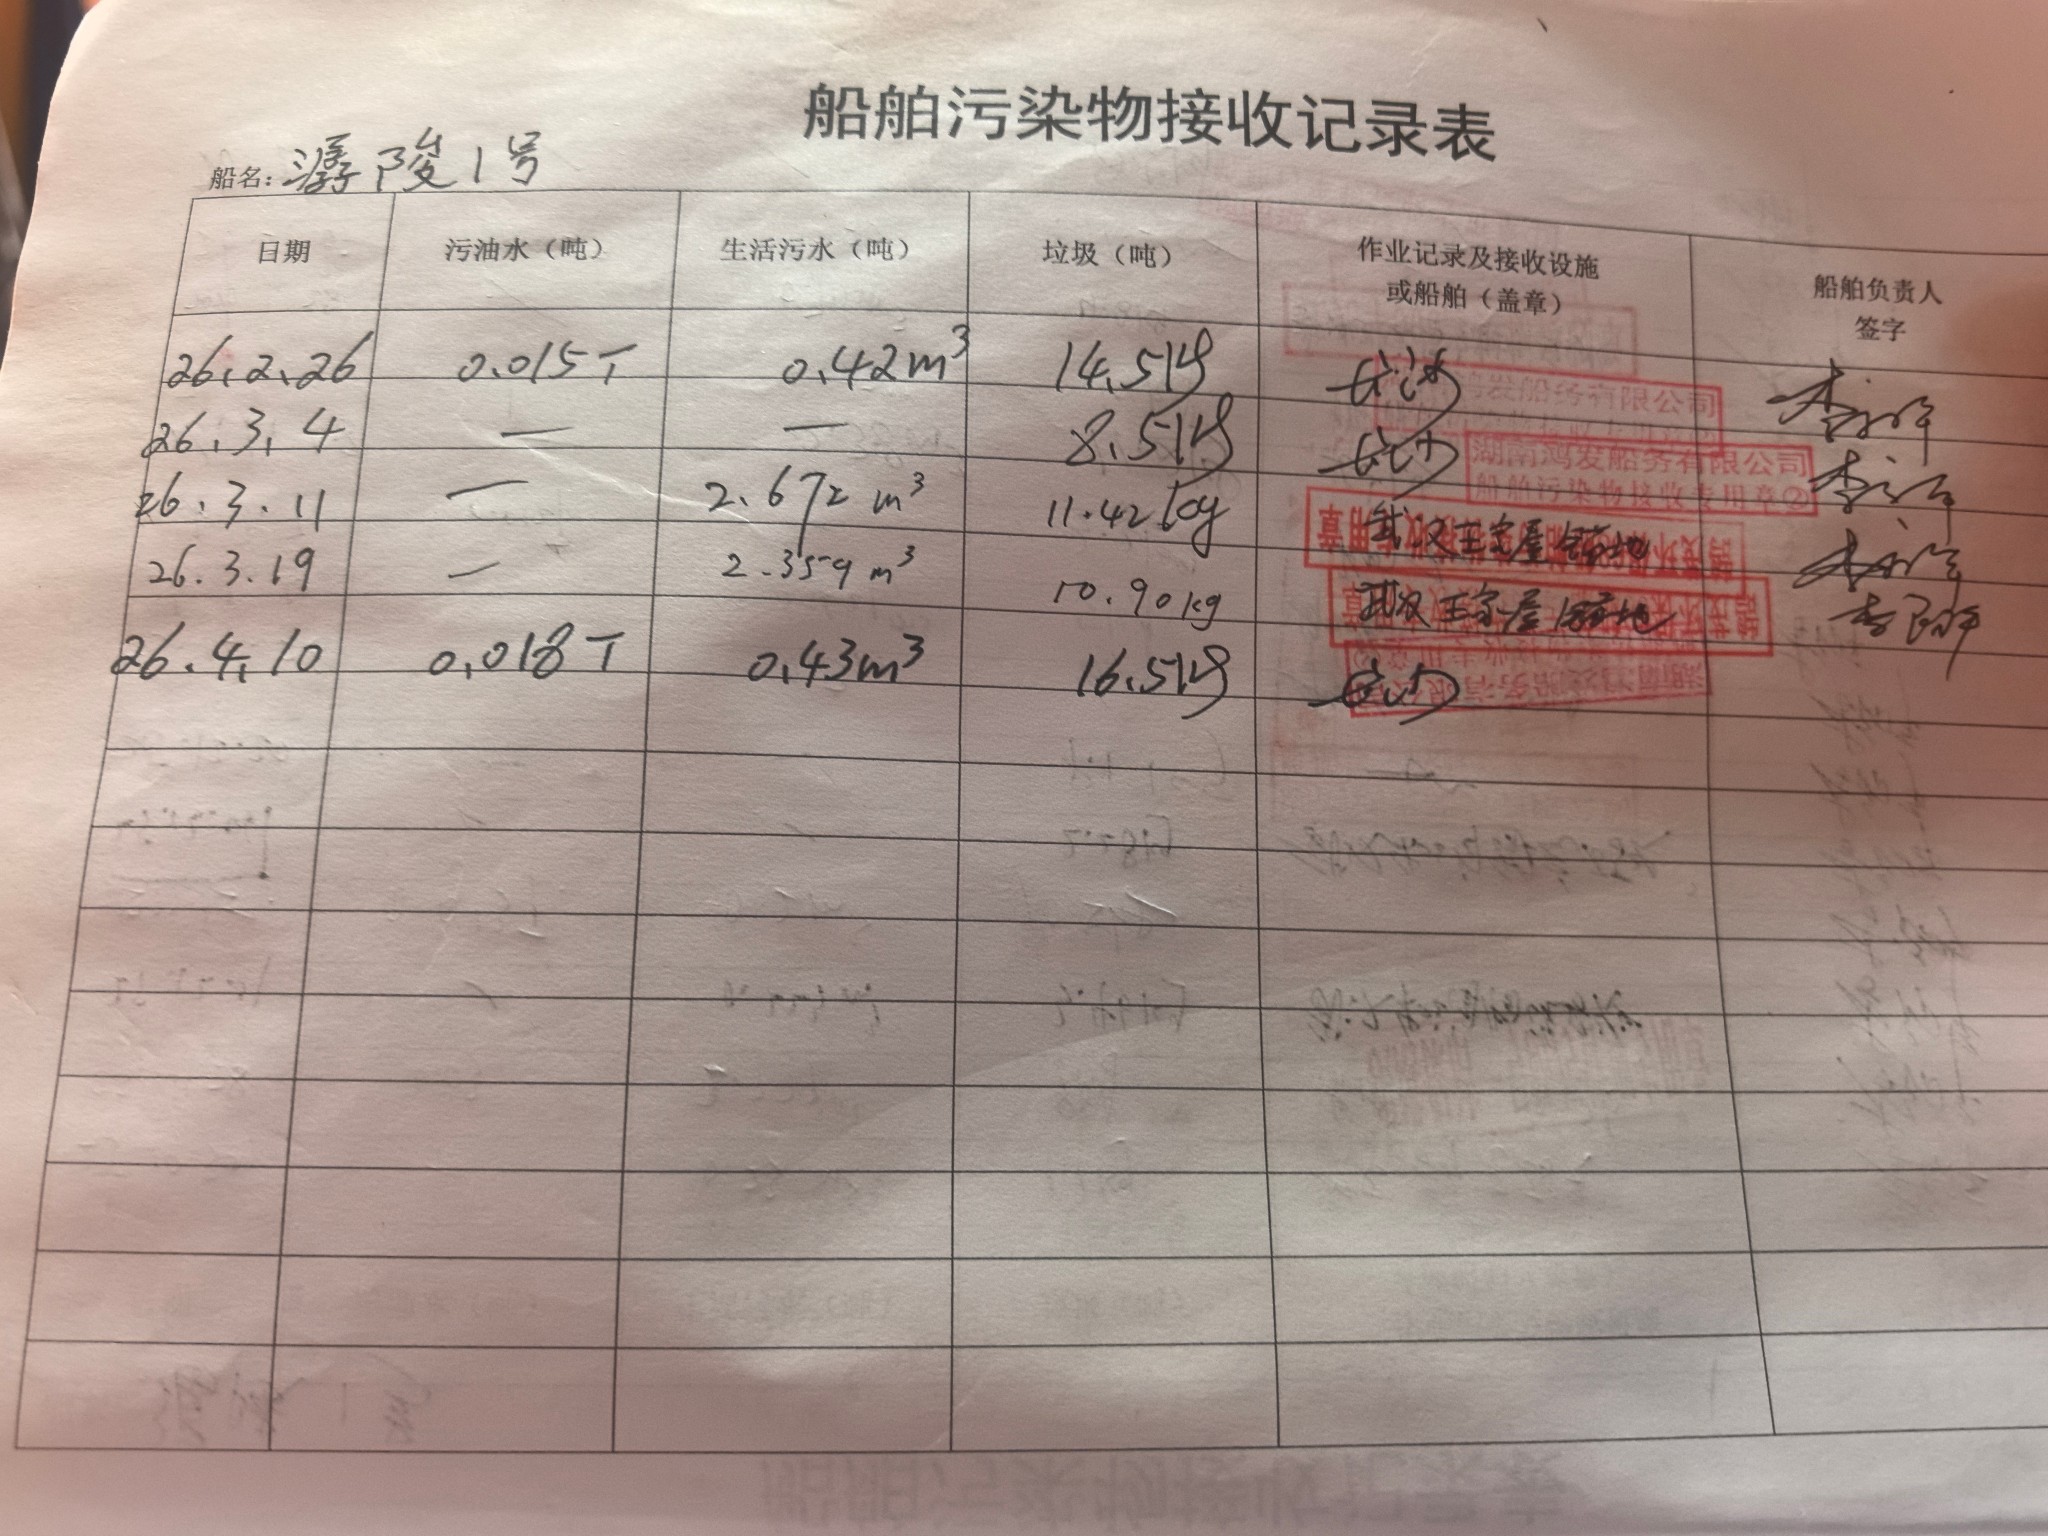 船舶污染物接收记录表
船名: 潺陵1号
日期 污油水（吨） 生活污水（吨） 垃圾（吨） 作业记录及接收设施或船舶（盖章） 船舶负责人签字
26.2.26 0.015T 0.42m³ 14.5kg 长沙
26.3.4 — — 8.5kg 长沙
26.3.11 — 2.672 m³ 11.42kg 武汉王家屋锚地
26.3.19 — 2.359 m³ 10.90kg 武汉王家屋锚地
26.4.10 0.018T 0.43m³ 16.5kg 长沙
鸿发船务有限公司
湖南鸿发船务有限公司
船舶污染物接收专用章②